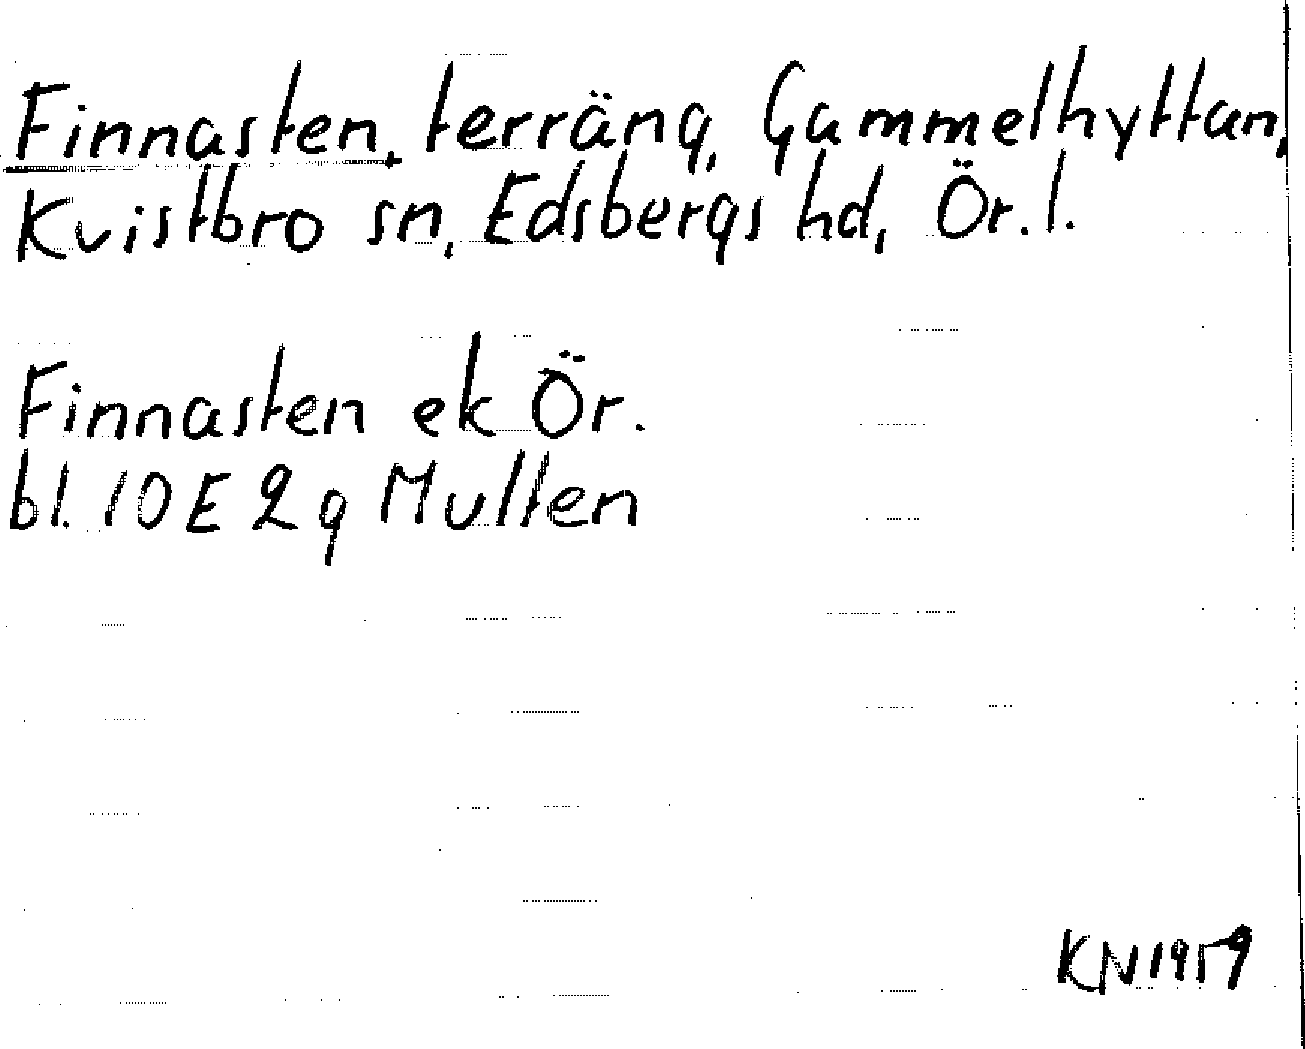 Finnasten, terräng, Gammelhyttan,
Kvistbro sn, Edsbergs hd, Ör. l.
Finnasten ek Ör.
bl. 10 E 2 g Mullen
KN 1959